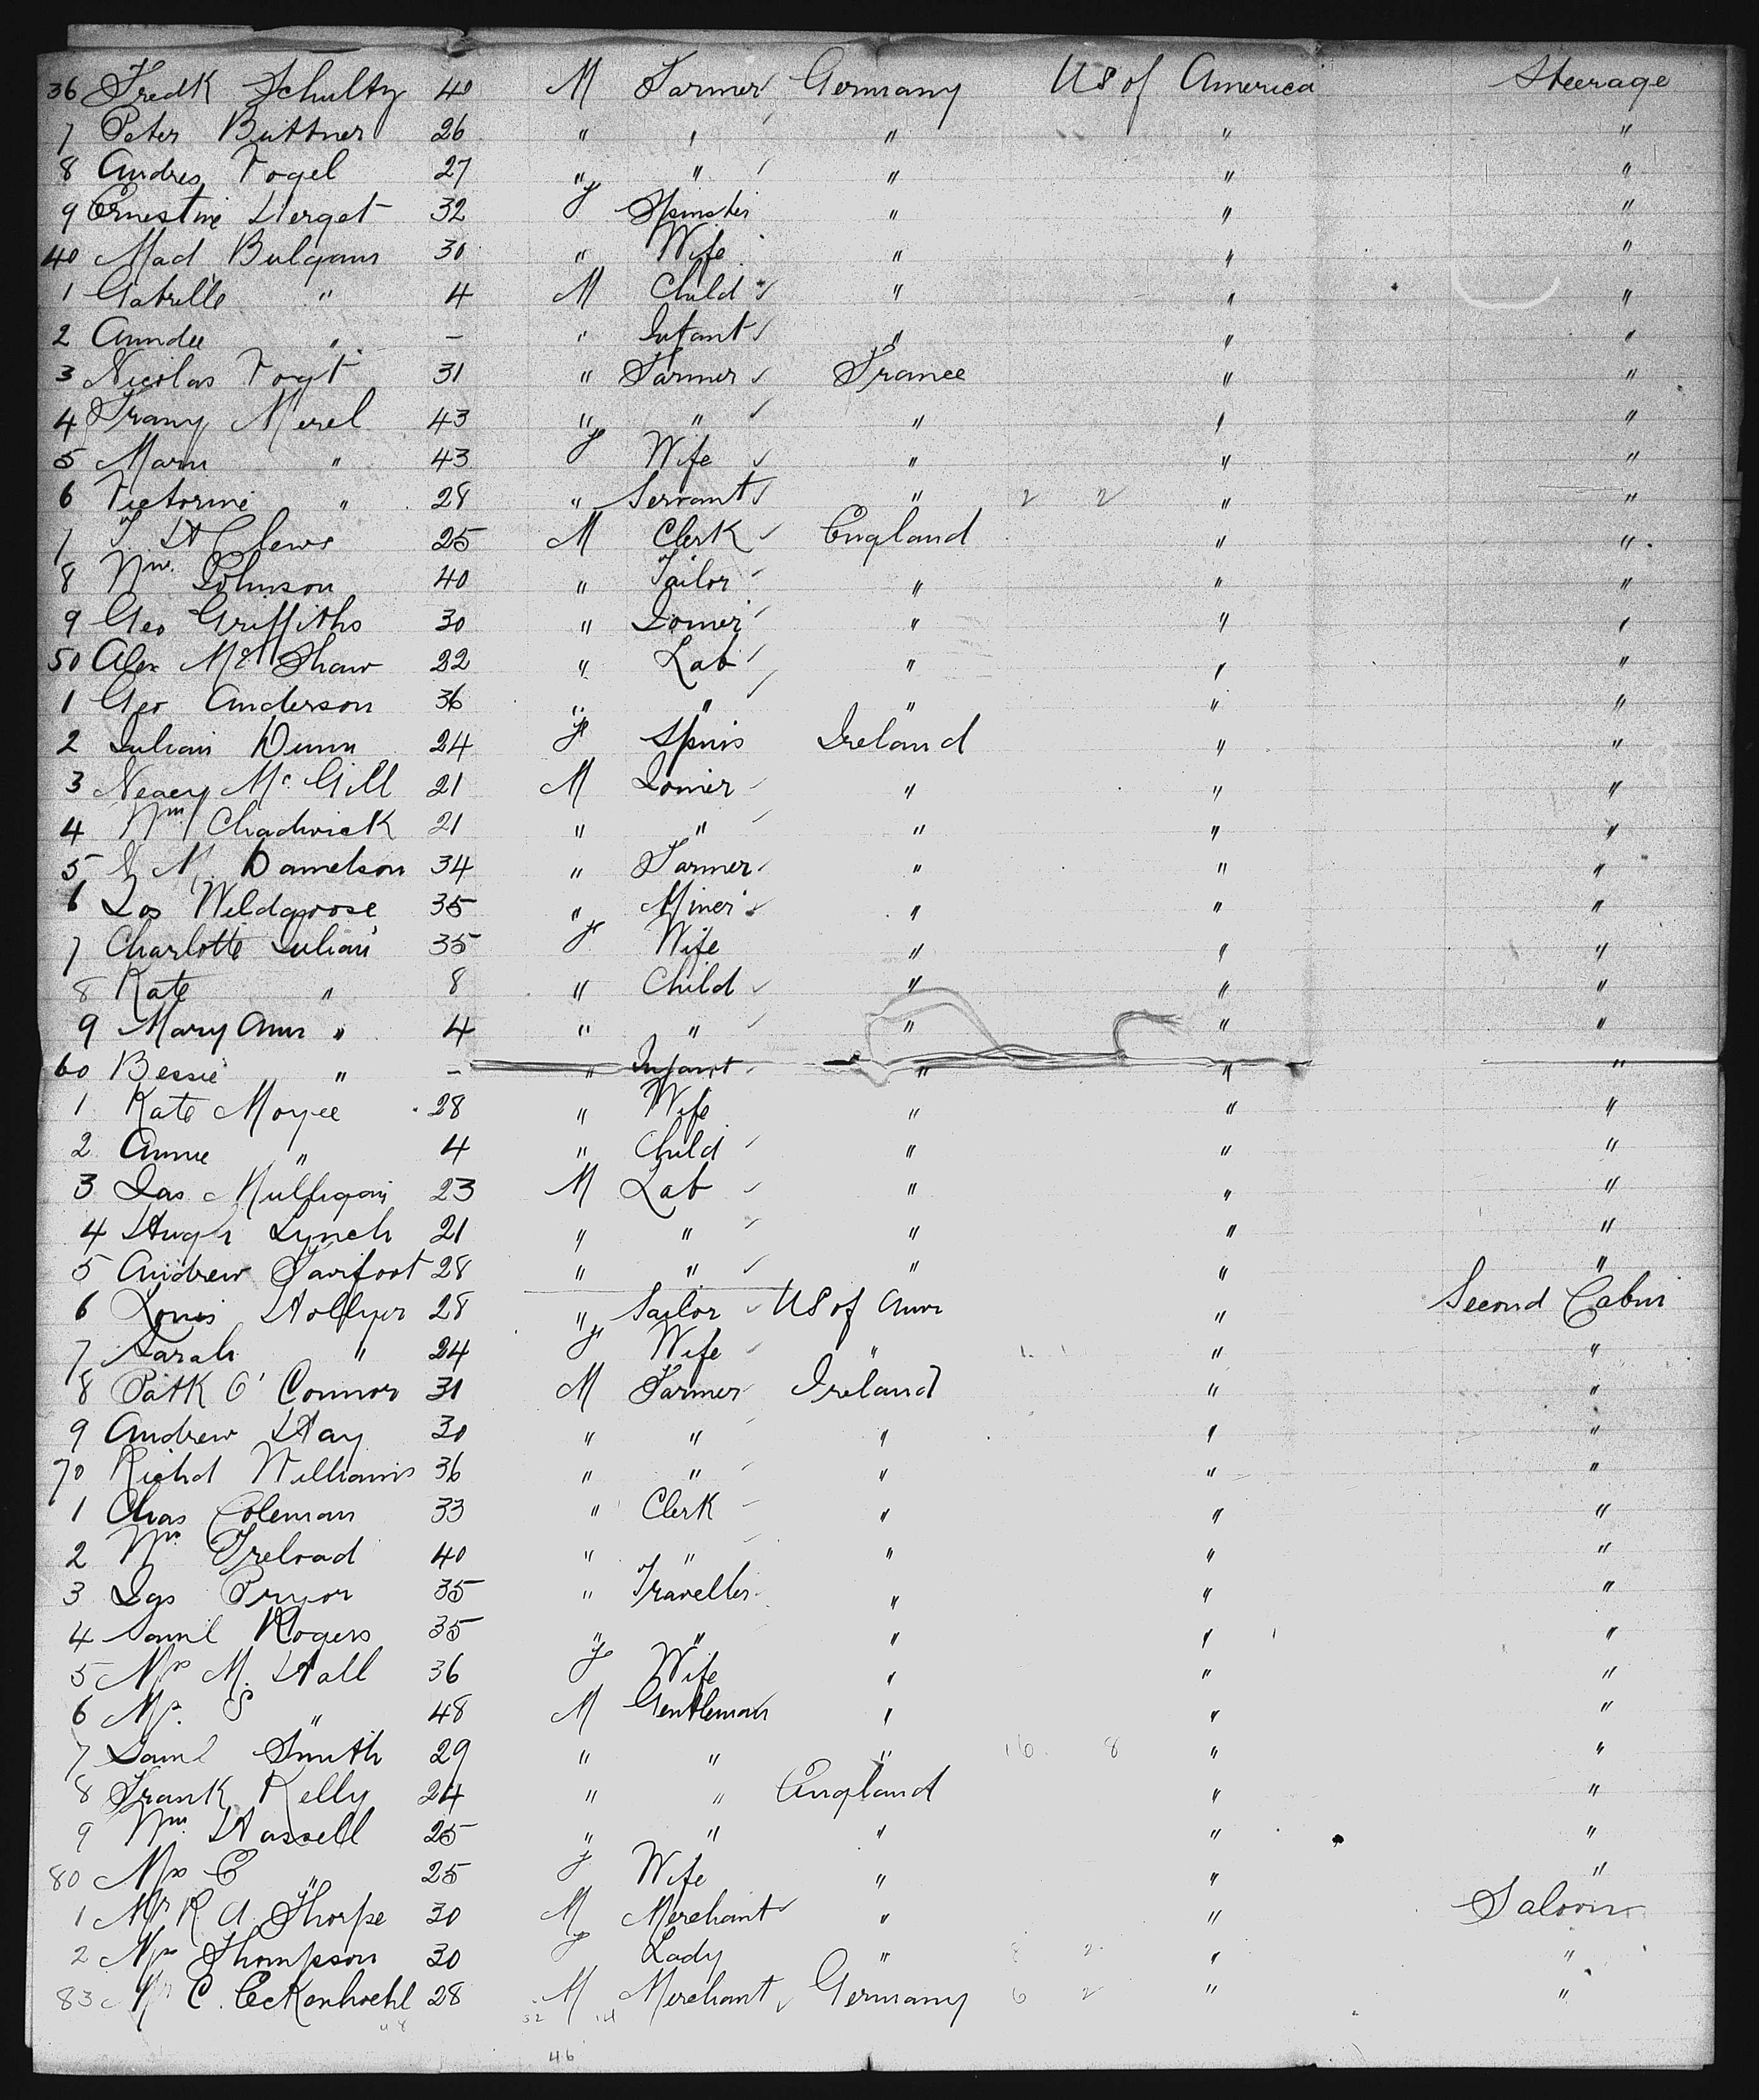 36 Fredk Schultz 40 M Farmer Germany U S of America Steerage
7 Peter Buttner 26 " " " " "
8 Andres Vogel 27 " " " " "
9 Ernestine Herget 32 F Spinster " " "
40 Mad Bulgaur 30 " Wife " " "
1 Gabrille " 4 M Child " " "
2 " - " Infant " " "
3 Nicolas Vogt 31 " Farmer France " "
4 Franz Merel 43 " " " " "
5 Marie " 43 F Wife " " "
6 Victorine " 28 " Servant " 2 2 " "
7 T H Clews 25 M Clerk England " "
8 Wm. Johnson 40 " Tailor " " "
9 Geo Griffiths 30 " Joiner " " "
50 Alex Mc Shaw 22 " Lab " " "
1 Geo Anderson 36 " " " " "
2 Julian Dunn 24 F Spins Ireland " "
3 Mc Gill 21 M Joiner " " "
4 Wm Chadwick 21 " " " " "
5 N Danielson 34 " Farmer " " "
6 Jos Wildgoose 35 " Miner " " "
7 Charlotte Julian 35 F Wife " " "
8 Kate " 8 " Child " " "
9 Mary Ann " 4 " " " " "
60 Bessie " - " Infant " " "
1 Kate Moyce 28 " Wife " " "
2 Annie " 4 " Child " " "
3 Jas Mulligan 23 M Lab " " "
4 Hugh Lynch 21 " " " " "
5 Andrew Fairfoot 28 " " " " "
6 Louis Hollyer 28 " Sailor U S of Amr " Second Cabin
7 Sarah " 24 F Wife " 1 1 " "
8 Patk O'Connor 31 M Farmer Ireland " "
9 Andrew Hay 30 " " " " "
70 Richd Williams 36 " " " " "
1 Chas Coleman 33 " Clerk " " "
2 Wm Treload 40 " " " " "
3 Jas Pryor 35 " Traveller " " "
4 Saml Rogers 35 " " " " "
5 Mrs M. Hall 36 F Wife " " "
6 Mr. S " 48 M Gentleman " " "
7 Saml Smith 29 " " " 16 8 " "
8 Frank Kelly 24 " " England " "
9 Wm Hassell 25 " " " " "
80 Mrs C " 25 F Wife " " "
1 Mr R A Thorpe 30 M Merchant " " Saloon
2 Mrs Thompson 30 F Lady " 8 2 " "
83 Mr C. Eckenhoehl 28 M Merchant Germany 6 2 " "
46